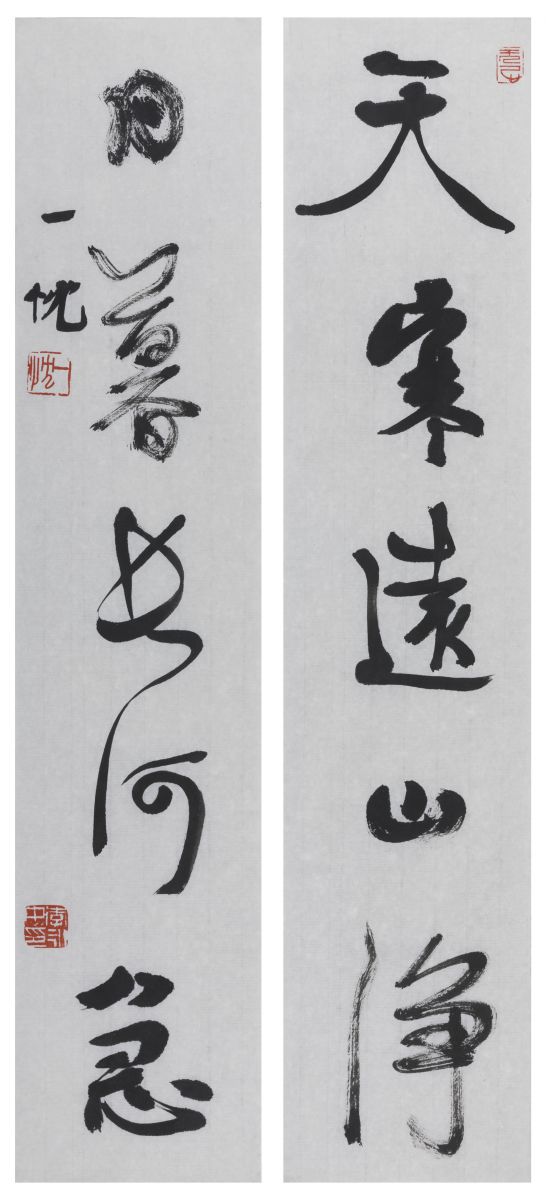 天寒遠山净
日暮长河急
一忱